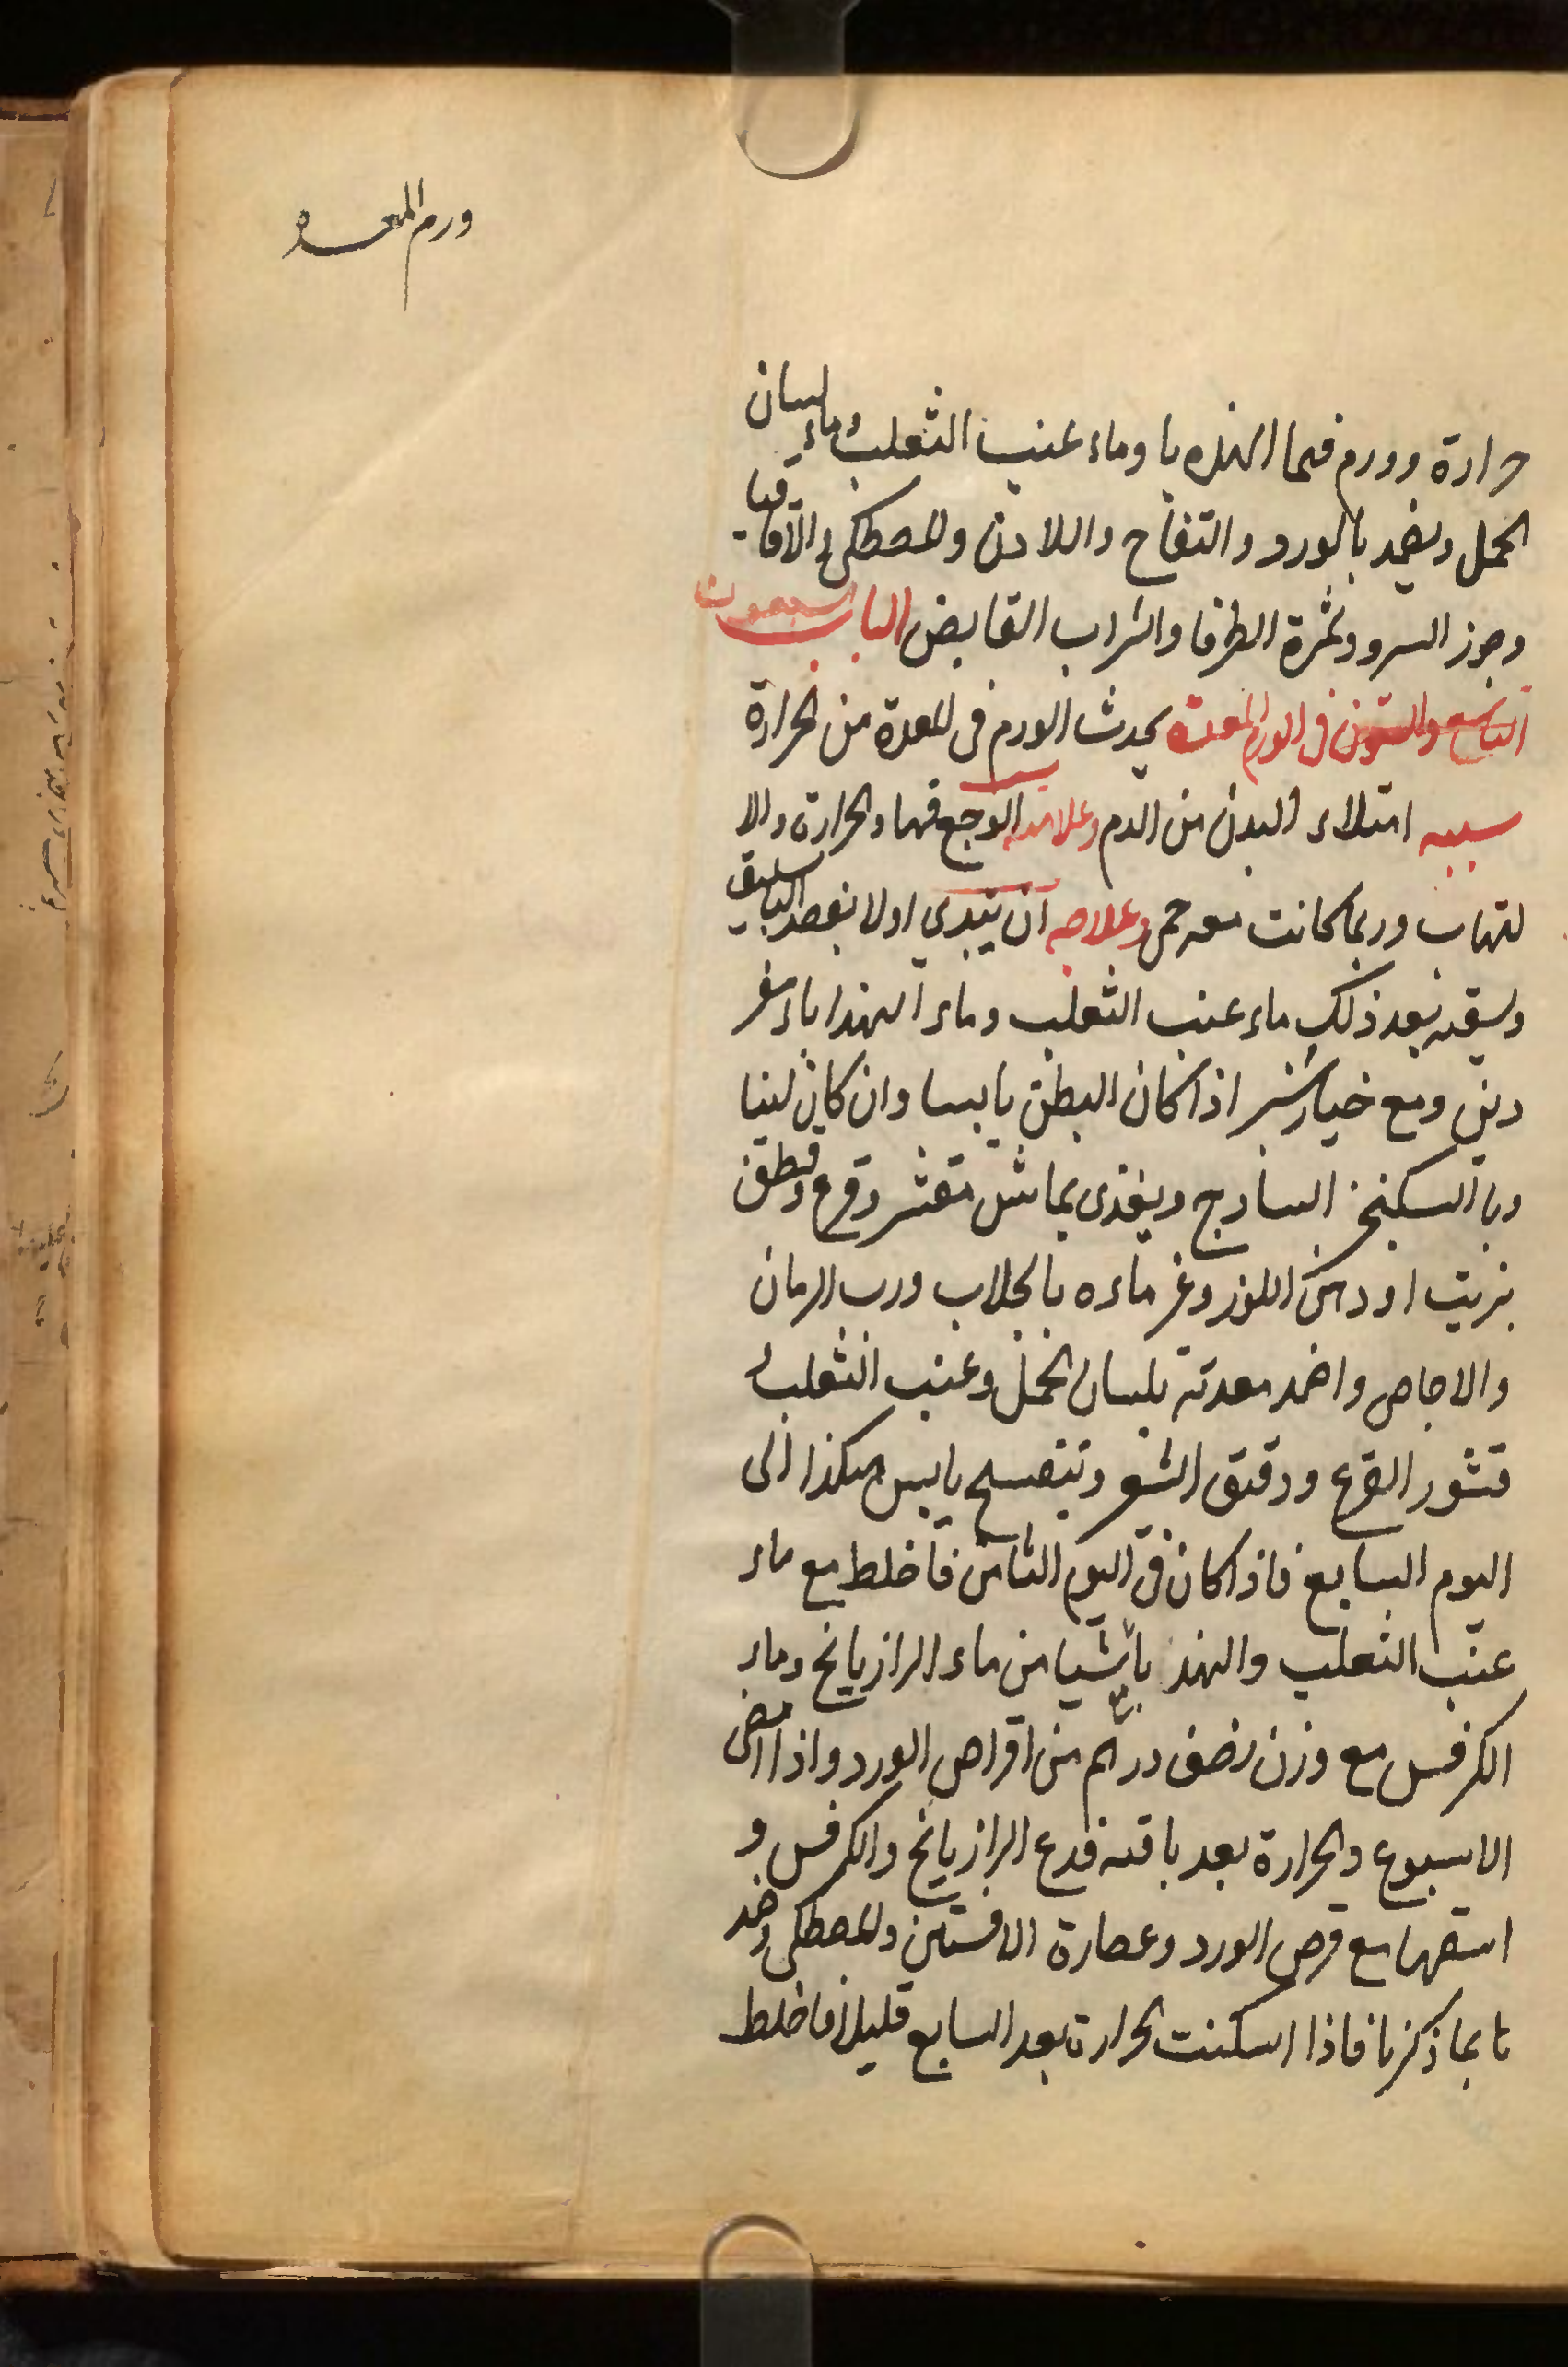 ورم المعده
حرارة وورم فبما الهندبا وماء عنب الثعلب وماء لسان
الحمل ويضمد بالورد والتفاح واللادن والمصطكى والاقاقيا
وجوز السرو وثمرة الطرفا والشراب القابض الباب السبعون
التاسع والستون فى الورم المعدة يحدث الورم فى المعدة من الحرارة
سببه امتلاء البدن من الدم وعلامته الوجع فيها والحرارة والا
لتهاب وربما كانت معه حمى وعلاجه ان يبتدى اولا بفصد الباسليق
ويسقيه بعد ذلك ماء عنب الثعلب وماء الهندباء مفر
دين ومع خيارشنبر اذا كان البطن يابسا وان كان لينا
وبالسكنجبين السادج ويغذى بماش مقشر وقرع وقطف
بزيت او دهن اللوز وغر ماءه بالجلاب ورب الرمان
والاجاص واضمد معدته بلسان الحمل وعنب الثعلب و
قشور القرع ودقيق الشعير وبنفسج يابس هكذا الى
اليوم السابع فاذا كان فى اليوم الثامن فاخلط مع ماء
عنب الثعلب والهندبا شيا من ماء الرازيانج وماء
الكرفس مع وزن نصف درهم من اقراص الورد واذا مضى
الاسبوع والحرارة بعد باقيه فدع الرازيانج والكرفس و
اسقهما مع قرص الورد وعصارة الافسنتين والمصطكى وضمد
نا بما ذكرنا فاذا اسكنت الحرارة بعد السابع قليلا فاخلط